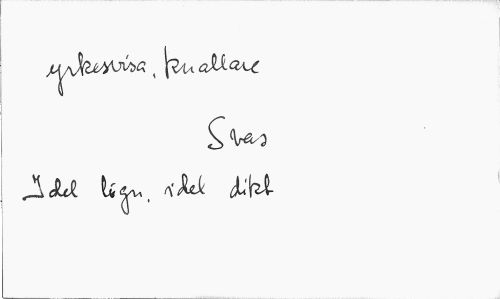 yrkesvisa, knallare
Svas
Idel lögn, idel dikt